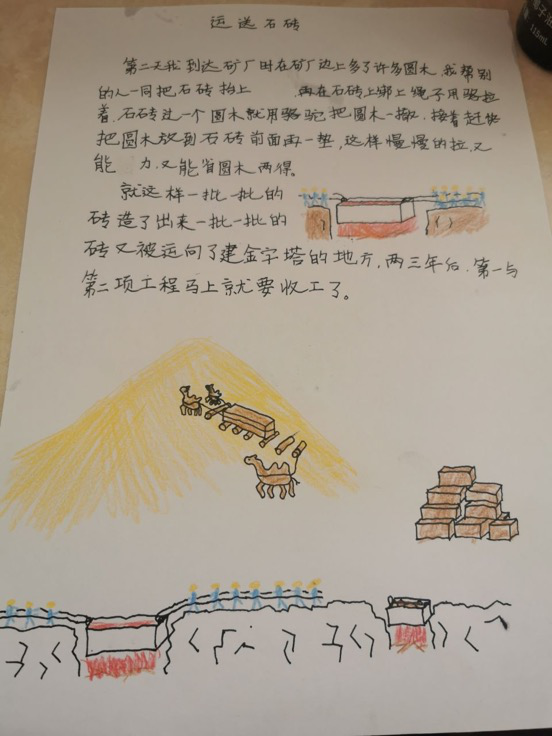 运送石砖
第二天我到达矿厂时在矿厂边上多了许多圆木，我帮别
的人一同把石砖抬上 再在石砖上绑上绳子用骆拉
着，石砖过一个圆木就用骆驼把圆木一撤，接着赶快
把圆木放到石砖前面再一垫，这样慢慢的拉，又
能 力又能省圆木两得。
就这样一批一批的
砖造了出来一批一批的
砖又被运向了建金字塔的地方，两三年后，第一与
第二项工程马上就要收工了。
115mL